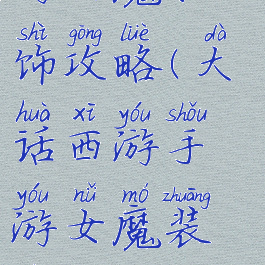 shì gōng lüè dà
饰攻略(大
huà xī yóu shǒu
话西游手
yóu nǚ mó zhuāng
游女魔装